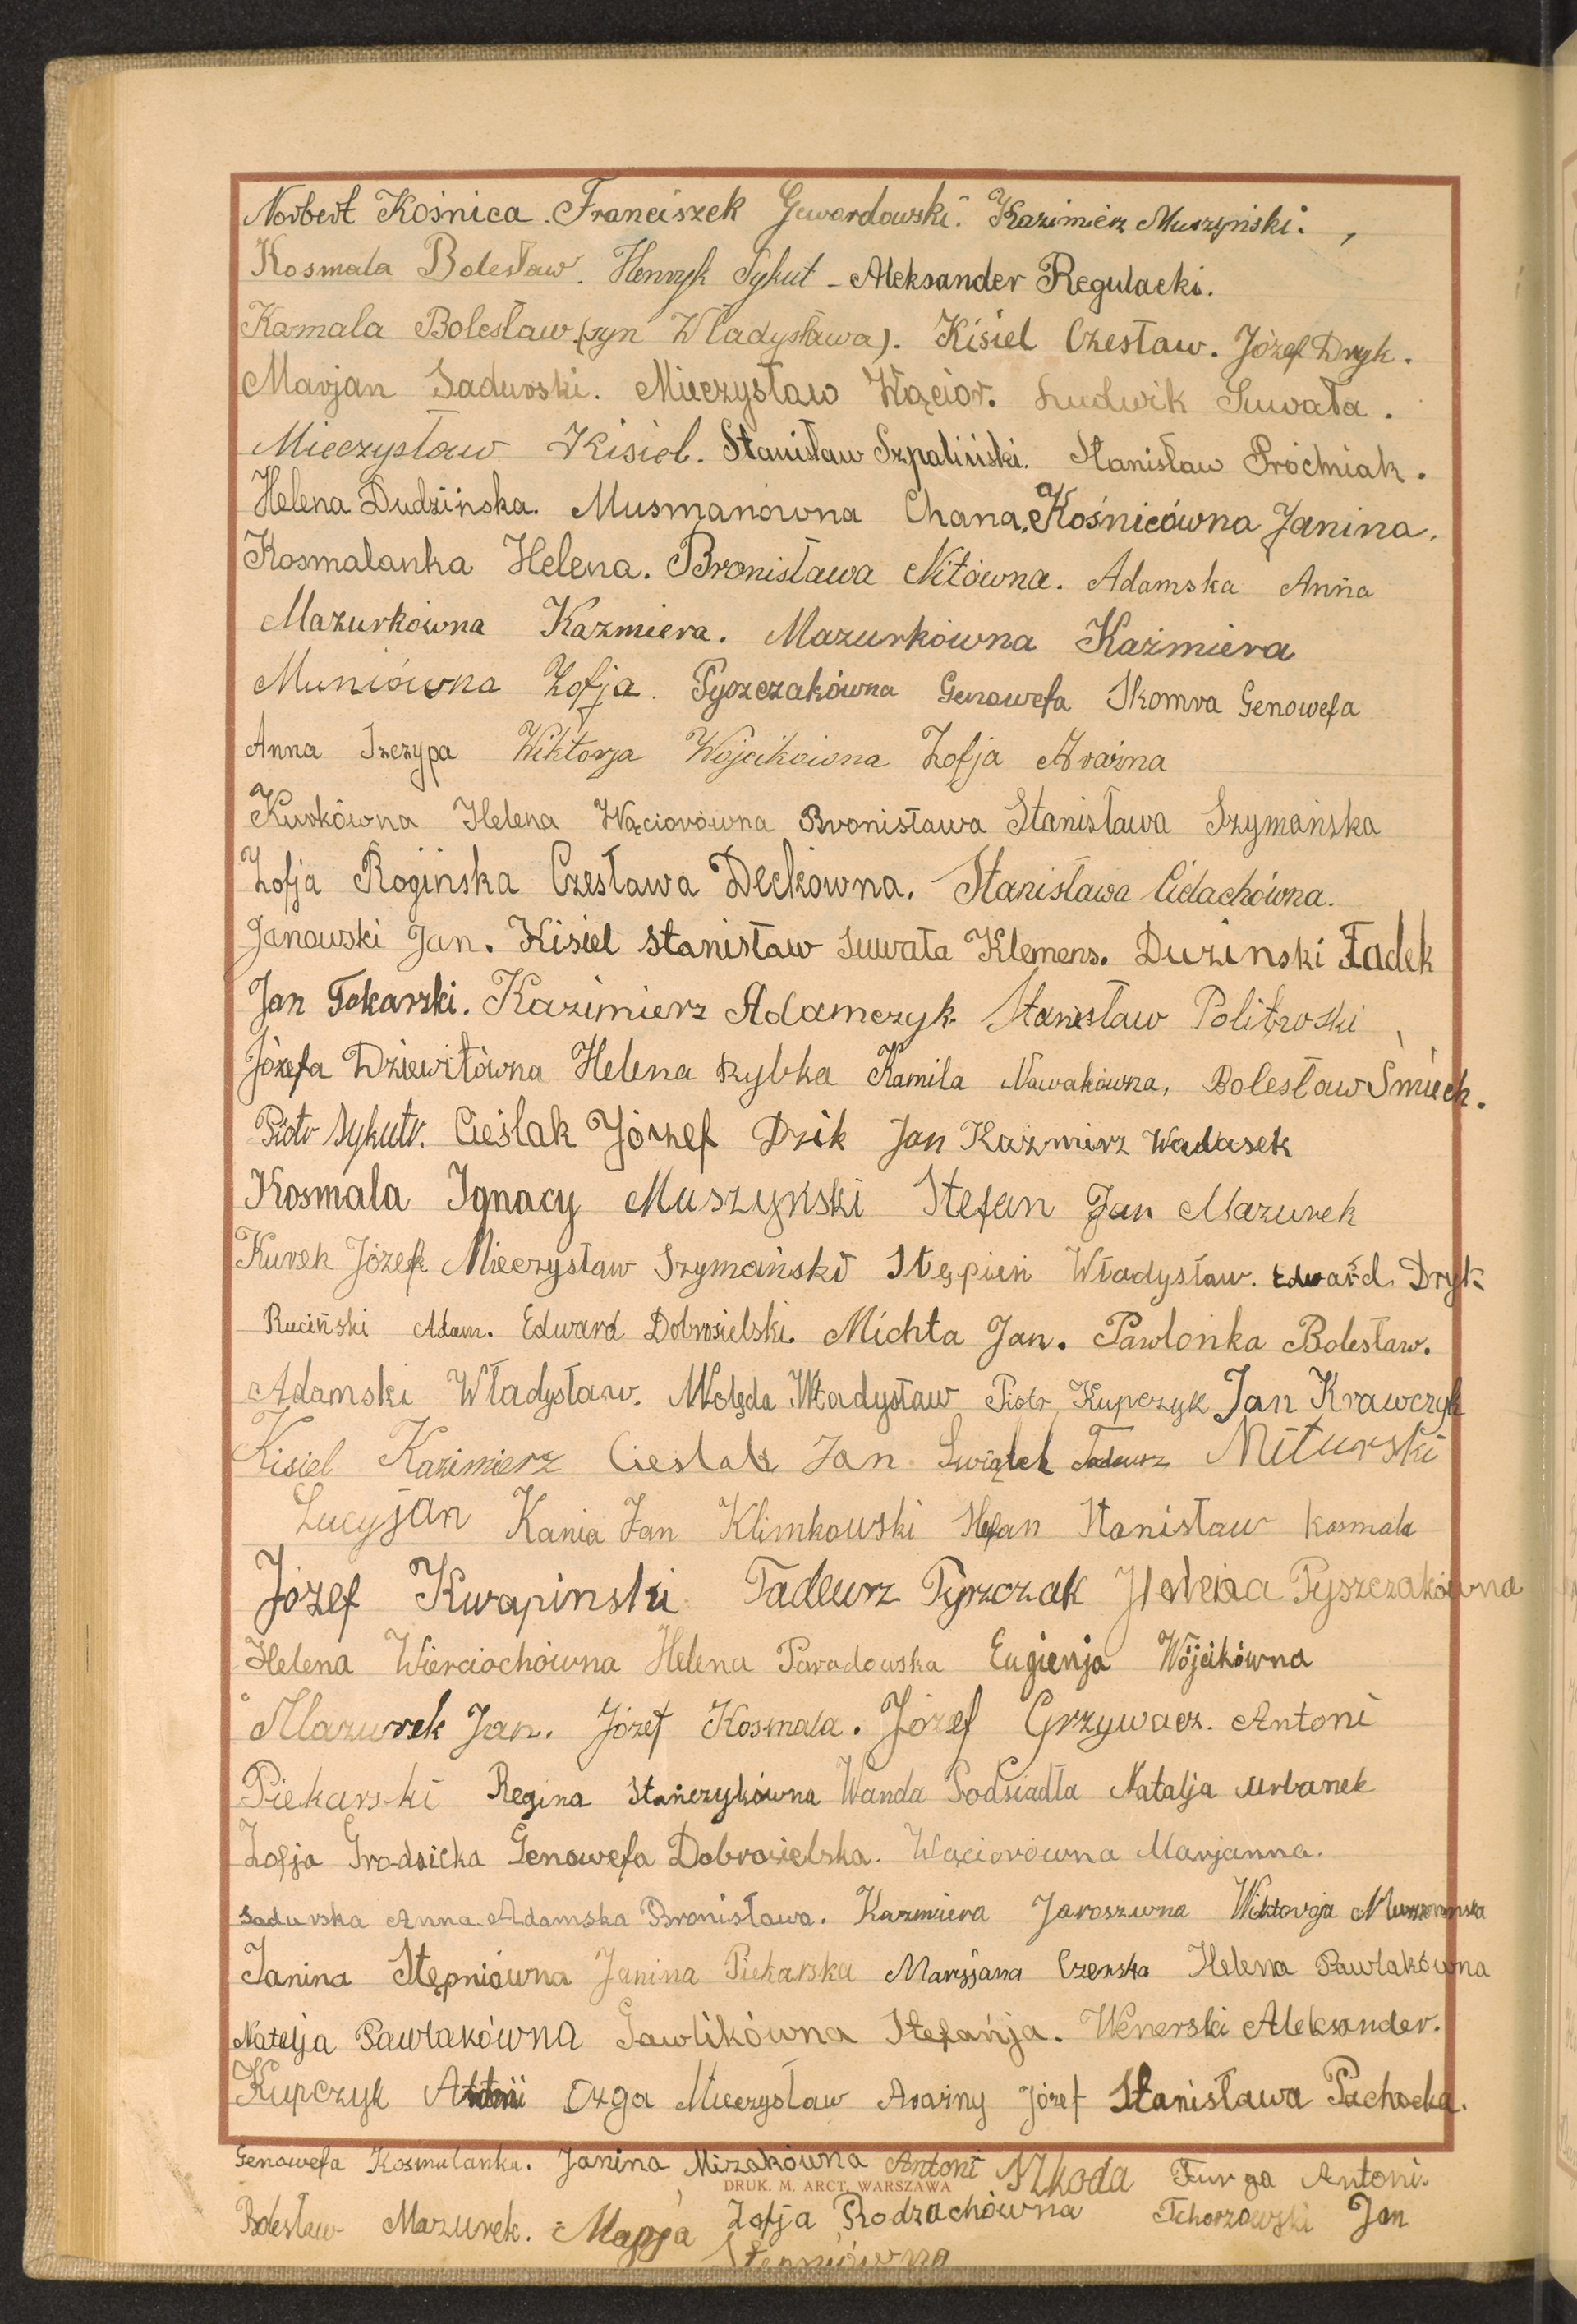 Norbert Kośnica. Franciszek Gewardowski. Kazimierz Muszyński.
Kosmala Bolesław. Henryk Sykut - Aleksander Regulacki.
Kamala Bolesław (syn Władysława). Kisiel Czesław. Józef Dryk.
Marjan Sadurski. Mieczysław Wącior. Ludwik Suwała.
Mieczysław Kisiel. Stanisław Szpaliński. Stanisław Próchniak.
Helena Dudzińska. Musmanówna Chana, Kośnicówna Janina,
Kosmalanka Helena. Bronisława Nitówna. Adamska Anna
Mazurkówna Kazmiera. Mazurkówna Kaźmiera
Muniówna Zofja. Pyszczakówna Genowefa Skomra Genowefa
Anna Szczypa Wiktorja Wójcikówna Zofja Araźna
Kurkówna Helena Wąciorówna Bronisława Stanisława Szymańska
Zofja Rogińska Czesława Deckówna. Stanisława Cidachówna.
Janowski Jan. Kisiel Stanisław Suwała Klemens. Duzinski Tadek
Jan Tokarski. Kazimierz Adamczyk Stanisław Politowski
Józefa Dziewitówna Helena Rybka Kamila Nowakówna, Bolesław Śmiech.
Piotr Sykut. Cieślak Józef Dzik Jan Kazmirz Wadasek
Kosmala Ignacy Muszyński Stefan Jan Mazurek
Kurek Józef Mieczysław Szymański Stępień Władysław. Edward Dryk
Ruciński Adam. Edward Dobrosielski. Michta Jan. Pawlonka Bolesław.
Adamski Władysław. Molęda Władysław Piotr Kupczyk Jan Krawczyk
Kisiel Kazimierz Cieslak Jan Świątek Tadeusz Miturski
Lucyjan Kania Jan Klimkowski Stefan Stanisław Kosmala
Józef Kwapinski Tadeurz Pyrzczak Helena Pyszczakówna
Helena Wierciochówna Helena Paradowska Eugienja Wójcikówna
Mazurek Jan. Józef Kosmala. Józef Grzywacz. Antoni
Piekarski Regina Stańczykówna Wanda Podsiadła Natalja Urbanek
Zofja Grodzicka Genowefa Dobrosielska. Wąciorówna Marjanna.
Sadurska Anna Adamska Bronisława. Kazmiera Jaroszwna Wiktorja
Janina Stępniówna Janina Piekarska Maryjana Czerska Helena Pawlakówna
Natalja Pawlakówna Gawlikówna Stefańja. Wenerski Aleksander.
Kupczyk Antoni Ozga Mieczysław Araźny Józef Stanisława Pachocka.
Genowefa Kosmalanka. Janina Mizakówna Antoni Szkoda Furga Antoni.
DRUK. M. ARCT, WARSZAWA
Bolesław Mazurek. Maryja Zofja Rodzachówna Tchorzowski Jan
Stępniówna